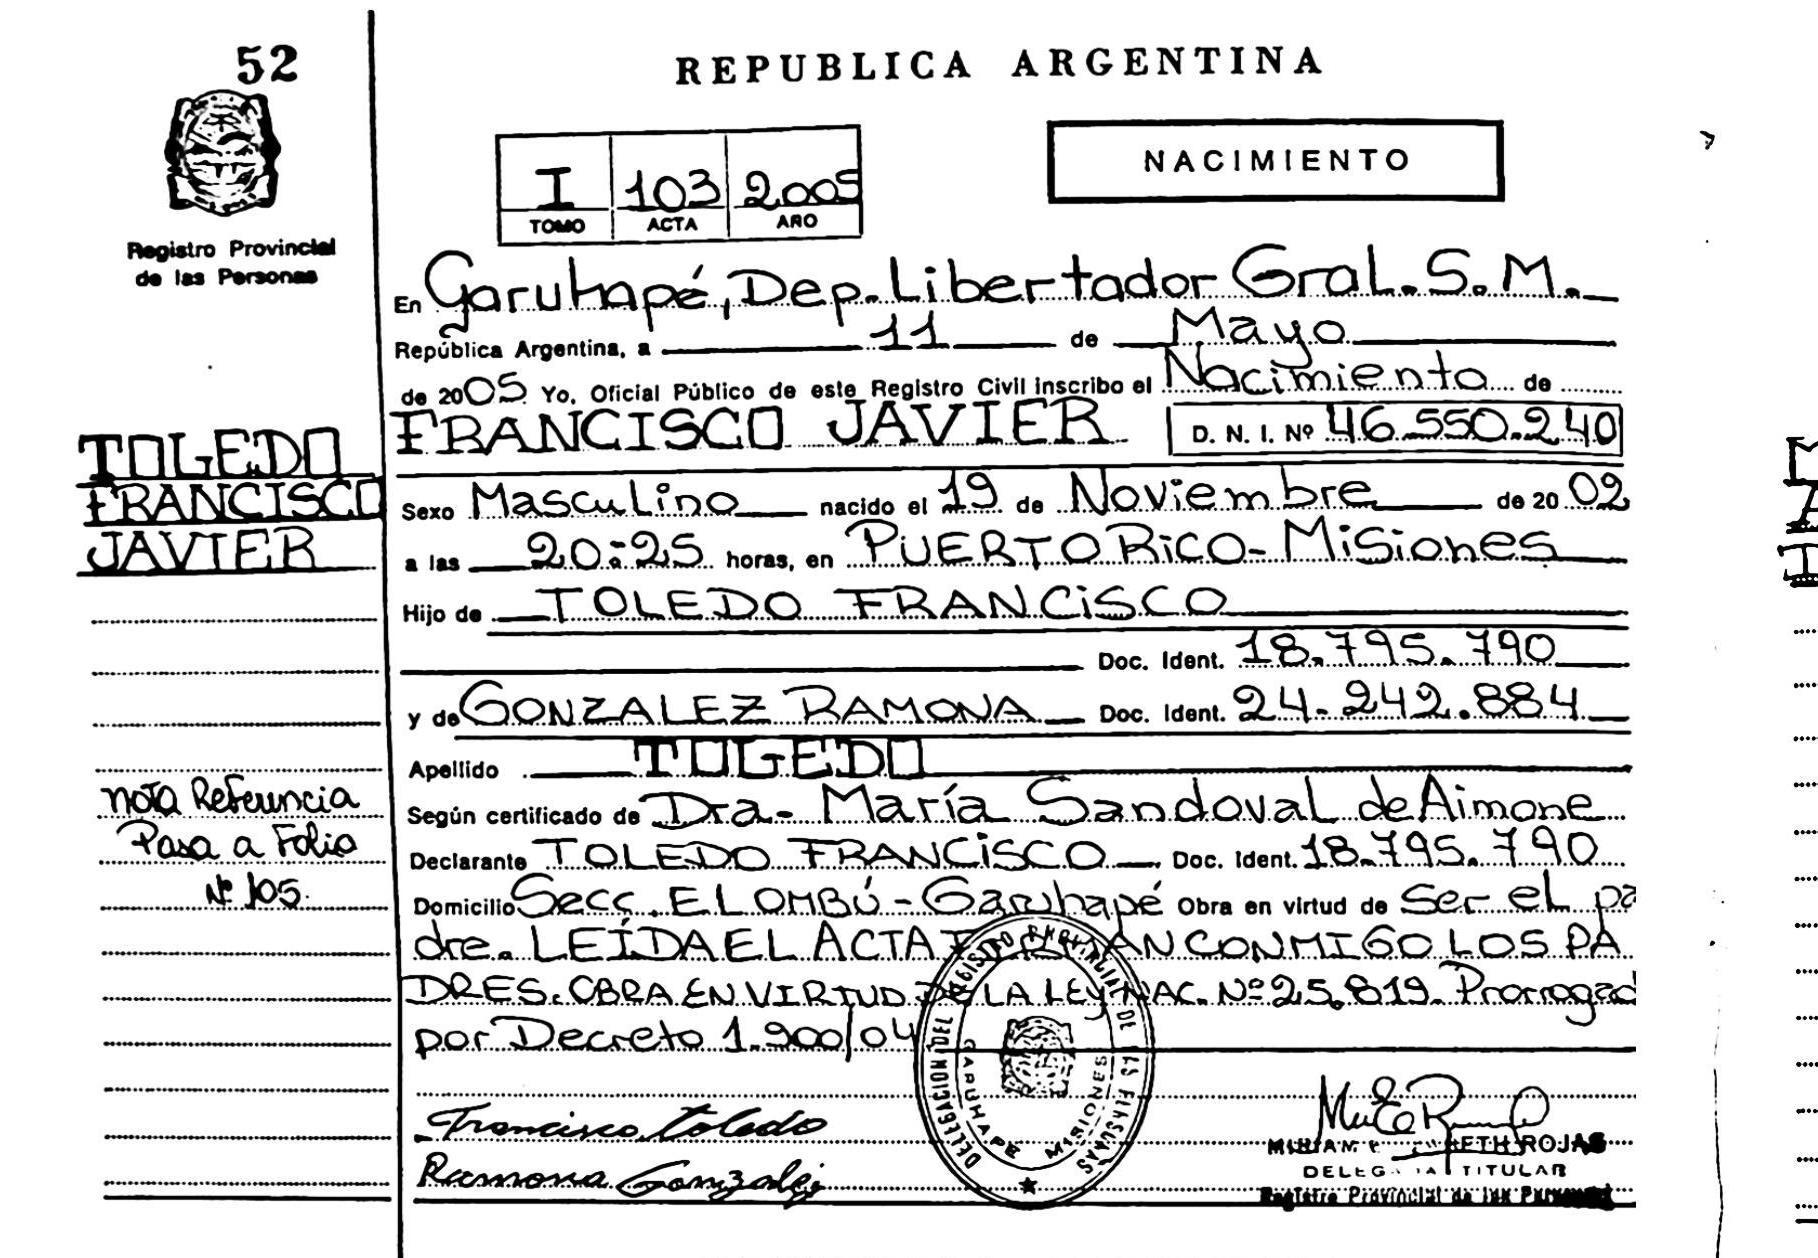 52
REPUBLICA ARGENTINA
NACIMIENTO
I 103 2005
TOMO ACTA AÑO
Registro Provincial
de las Personas
En Garuhapé, Dep. Libertador Gral. S. M.
República Argentina, a 11 de Mayo
de 2005 Yo, Oficial Público de este Registro Civil inscribo el Nacimiento de
FRANCISCO JAVIER D. N. I. Nº 46.550.240
TOLEDO
FRANCISCO
JAVIER
Sexo Masculino nacido el 19 de Noviembre de 2002
a las 20:25 horas, en PUERTO RICO - Misiones
Hijo de TOLEDO FRANCISCO
Doc. Ident. 18.795.790
y de GONZALEZ RAMONA Doc. Ident. 24.242.884
Apellido TOLEDO
Según certificado de Dra- María Sandoval de Aimone
Declarante TOLEDO FRANCISCO Doc. Ident. 18.795.790
Domicilio Secc. EL OMBÚ - Garuhapé Obra en virtud de ser el pa
dre. LEÍDA EL ACTA CONMIGO LOS PA
DRES. OBRA EN VIRTUD DE LA LEY NAC. Nº 25.819. Prorrogad
por Decreto 1.900/04
nota Referencia
Pasa a Folio
Nº 105
Francisco Toledo
Ramona Gonzalez
DELEGACION DEL REGISTRO PROVINCIAL DE LAS PERSONAS
GARUHAPE MISIONES
MIRIAM ROJAS
DELEGADA TITULAR
Registro Provincial de las Personas